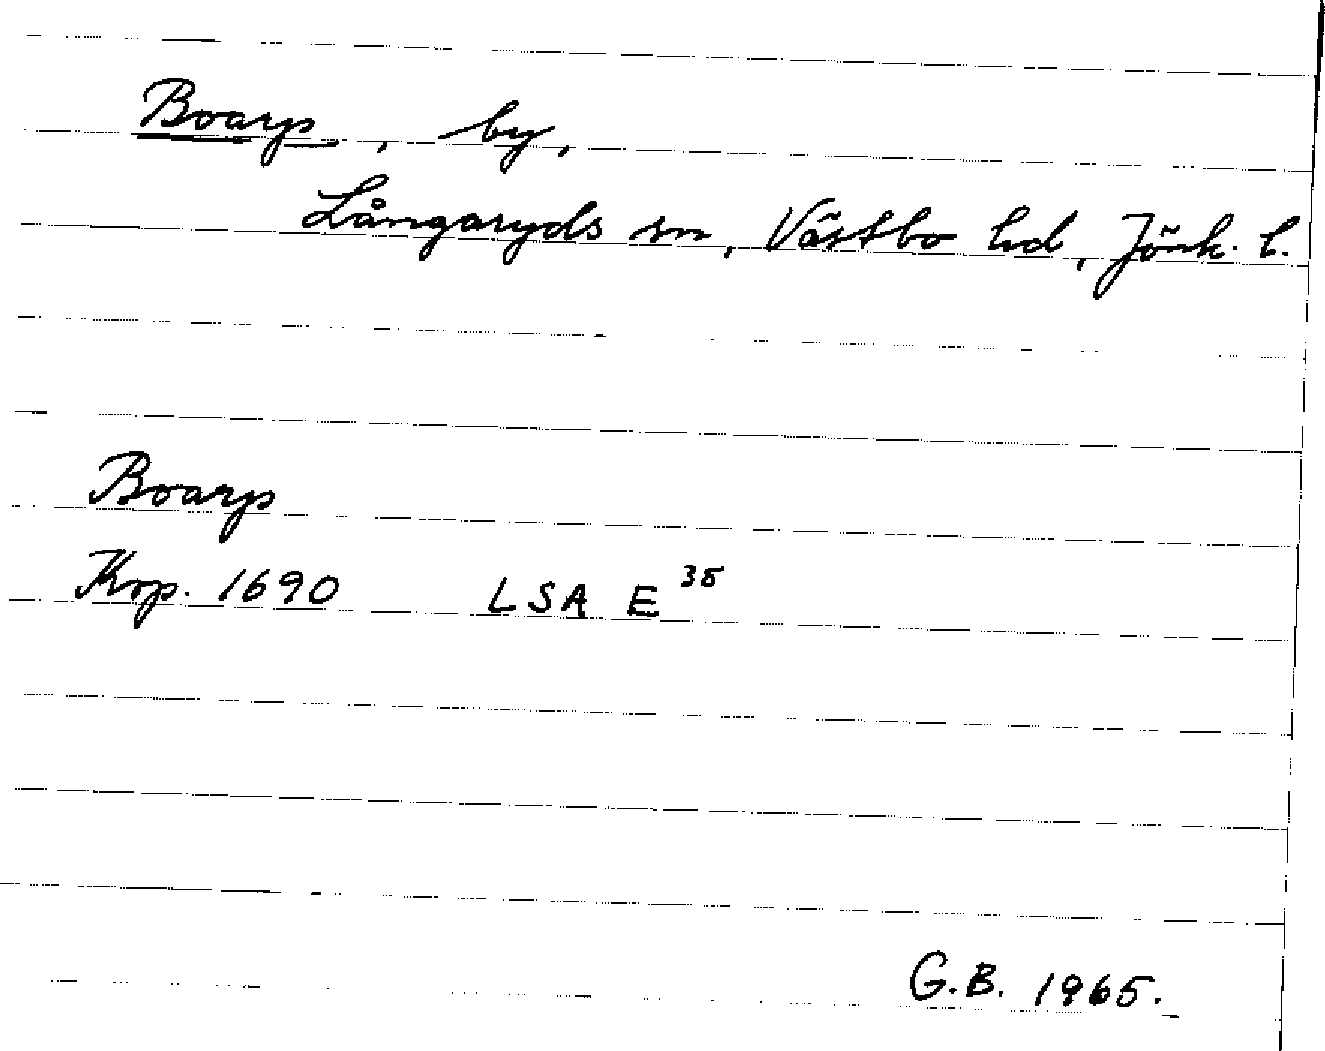 Boarp, by,
Långaryds sn, Västbo hd, Jönk. l.
Boarp
Kop. 1690 LSA E 35
G.B. 1965.